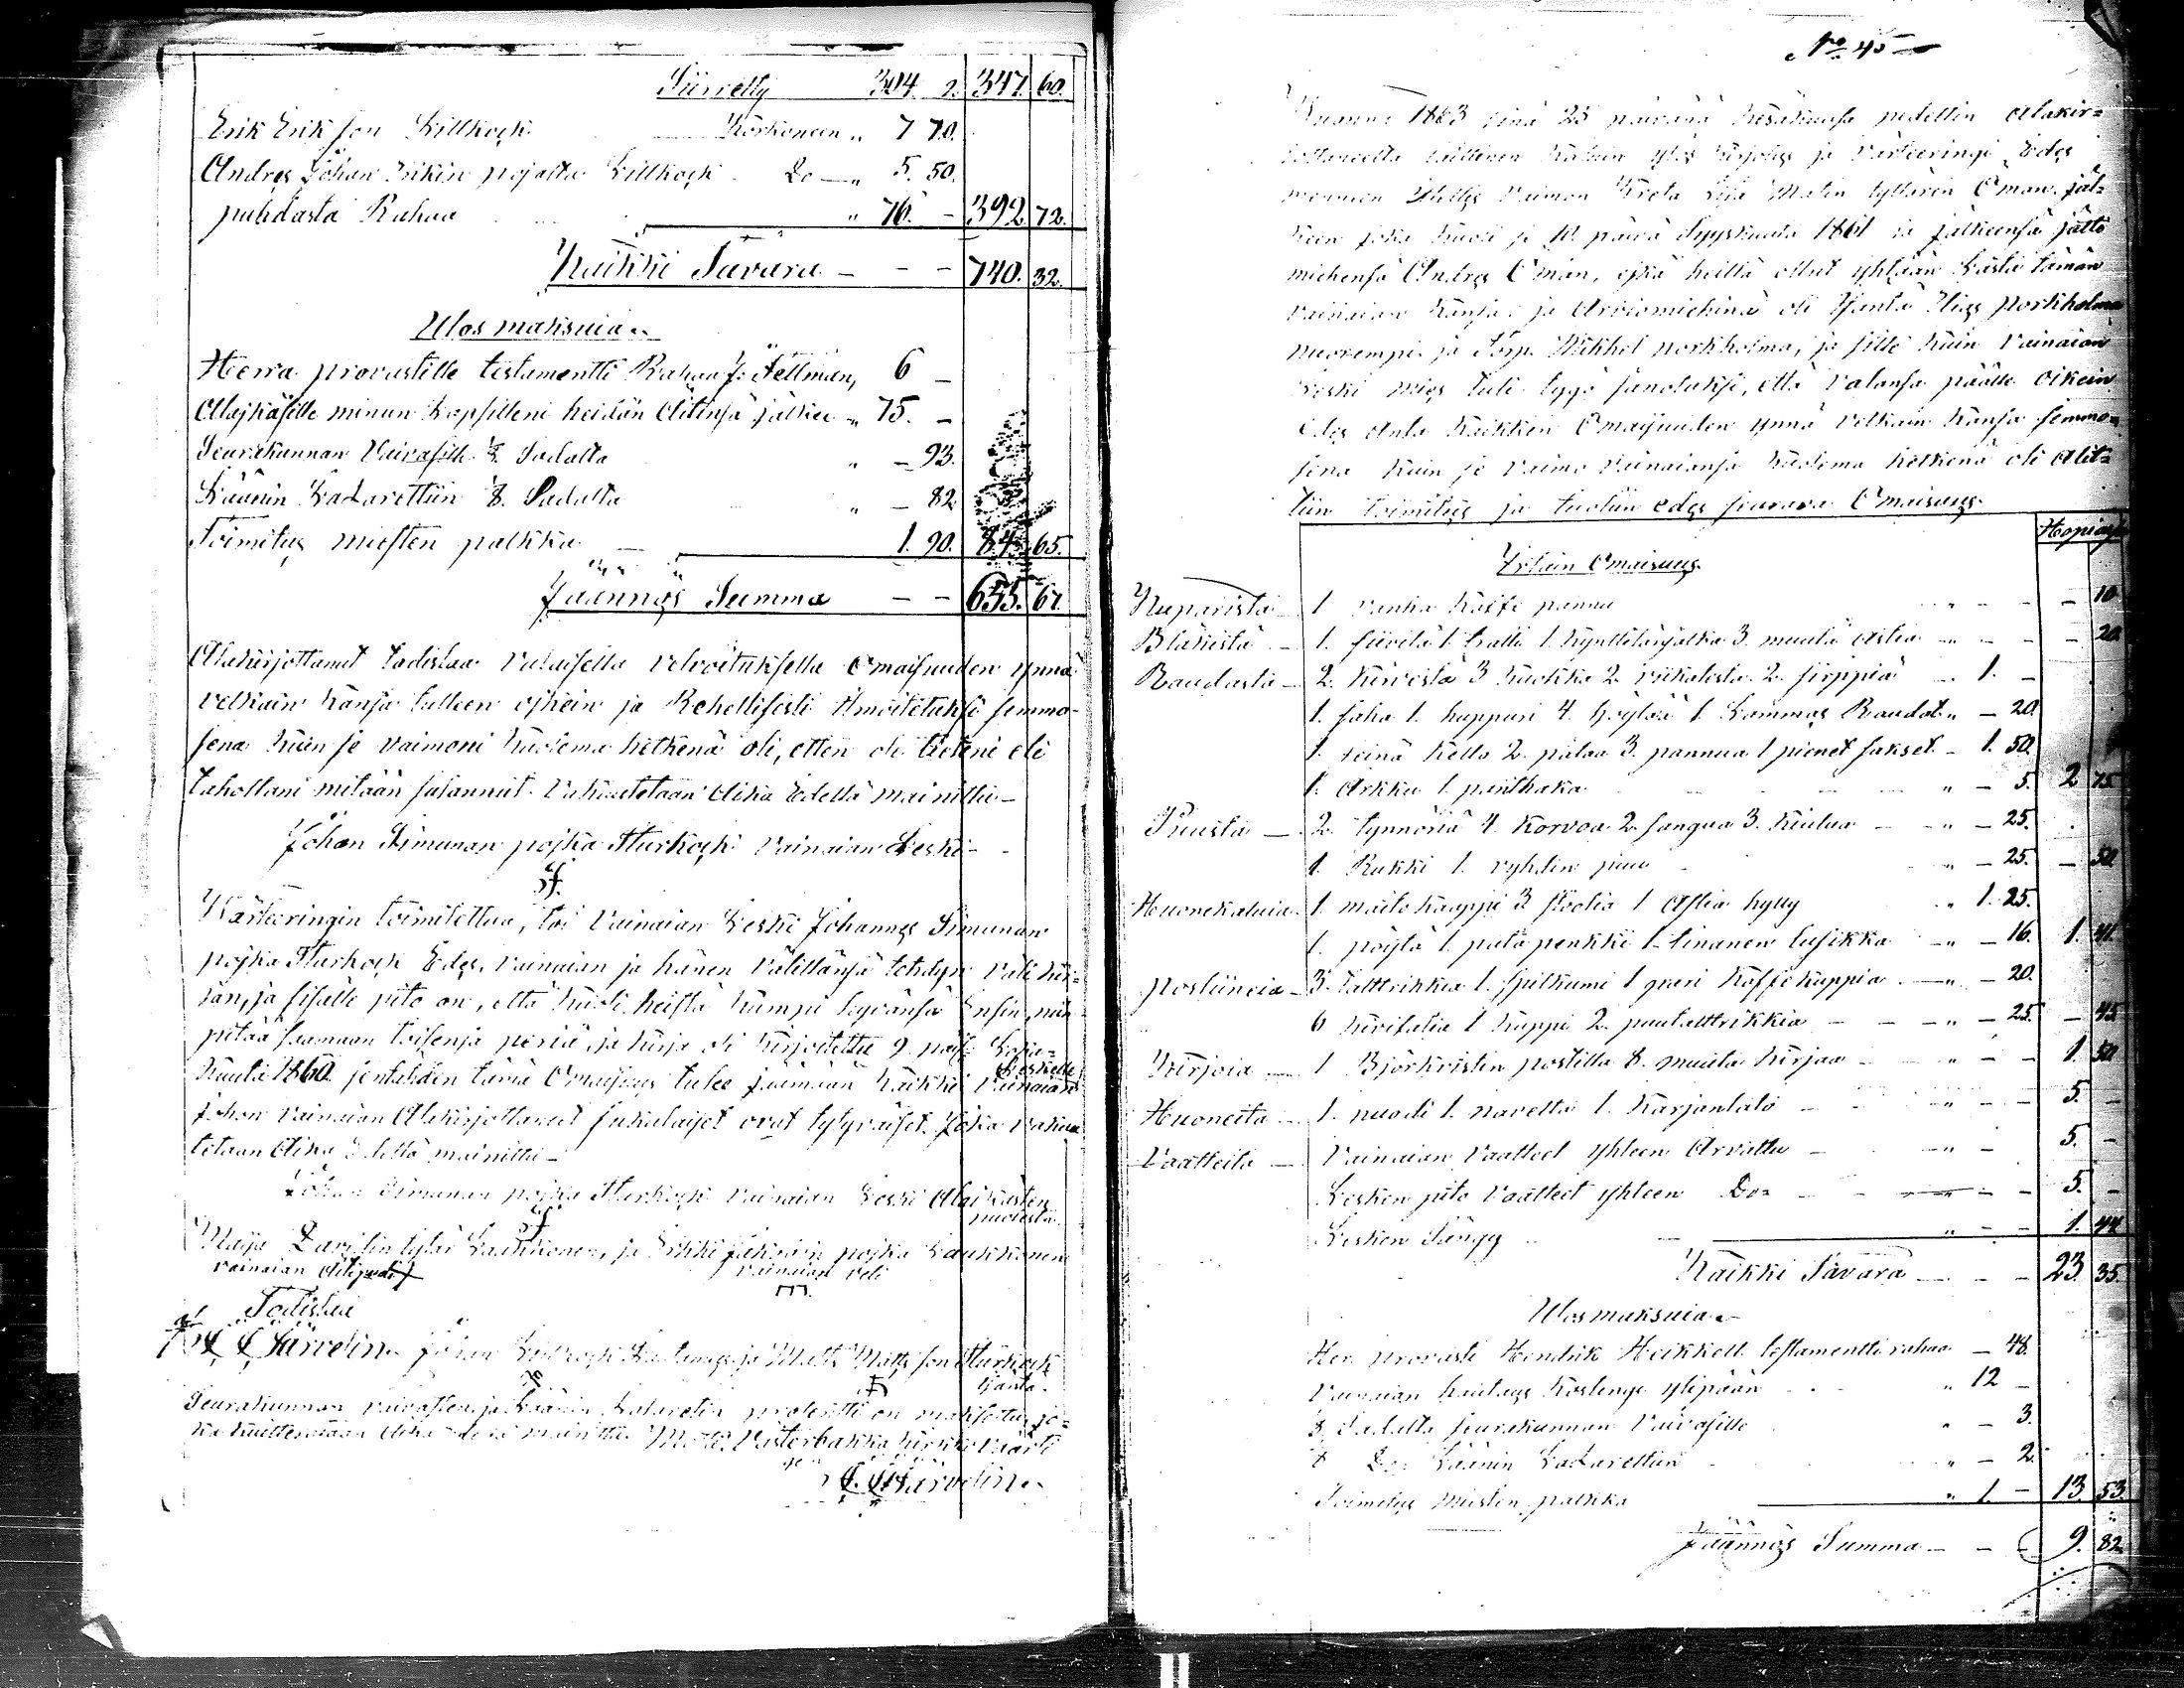 Siirretty 304. 2. 347. 60.
Erik Erik son Lillkock Korkoneen „ 7 70.
Andres Johan Erikin pojalta Lillkock Do — „ 5. 50.
puhdasta Rahaa „ 76. — 392. 72.
Kaikki Tavara — — — 740. 32.
Ulos maksuia
Herra provastille testamentti Rahaa J: Fellman, 6 —
Alajkäsille minun Lapsilleni heidän Äitinsä jälkee „ 75. —
Seurakunnan Vaivasille 1/8 Sadalta „ — 93.
Läänin Lazarettiin 1/8 Sadalta „ — 82
Toimitus miesten palkka 1. 90. 84. 65.
Jäännös Summa — — 655. 67.
Allakirjottanut todistaa valaisella velvoituksella Omaisuuden ynnä
velkain kansa tulleen oikein ja Rehellisesti Ilmoitetuksi semmo-
sena kuin se vaimoni kuolema hetkenä oli, etten ole tieteni eli
tahottani mitään salannut. Vakuutetaan Aika Edellä mainittu —
Johan Simunan pojka Sturkock Vainaian Leski —
Värteeringin toimitettua, toi Vainaian Leski Johannes Simunan
pojka Sturkock Edes, vainaian ja hänen Välillänsä tehdyn väli kir-
jan, ja sisälle pito on, että kuoli heistä kumpi hyvänsä Ensin, niin
pitää saamaan toisensa periä, ja kirja oli kirjoitettu 9 päiv Loka-
kuuta 1860. jentähden tämä Omaisuus tulee jäämään kaikki Vainaian Leskelle
johon vainaian Alakirjottanut sukulaiset ovat tytyväiset. Joka vakuu
tetaan Aika Edellä mainittu —
Johan Simunan pojka Sturkock vainaian Leski Alaikästen puolesta
Maija Davidin tytär Laukkonen, ja Erkki Jakobin pojka Laukkonen
vainaian Äitipuoli vainaian veli
Todistaa
C Järvelin Johan ja Matts Matts son Sturkock
Isäntä.
Seurakunnan vaivasten ja Läänin Lazaretin prosentti on maksettu, jo-
ka kuittetaan Aika edellä mainittu Matts Västerbakka kirkko väärti
C. Järvelin
No 45
Vuonna 1863 sinä 25 päivänä kesäkuusa pidettiin Alakir-
jottaneelta laillinen kaluin ylös kirjotus ja Värteeringi Edes
mennen Itellis Vaimon Kreta Lisa Matin tyttären Öman jäl-
keen joka kuoli ja 10 päivä Syyskuuta 1861 ja jälkeensä jätti
miehensä Andres Öman, eikä heillä ollut yhtään Lasta tämän
vainaian kansa; ja Arviomiehinä oli Isäntä Elias porkholma
nuorempi ja Torp. Mikkel porkholma, ja sitte kuin Vainaian
Leski mies tuli tygö sanotuksi, että Valansa päälle oikein
Edes Anta kaikken Omaisuuden ynnä velkain kansa semmo-
sena kuin se vaimo vainaiansa kuolema hetkenä oli Alet-
tiin toimitus ja tuotiin edes seurava Omaisuus
Hopiasa
Irtain Omaisuus
Kuparista 1 vanha kaffe pannu — — 10
Bläkistä — 1. siivilä 1 tratti 1. kynttilänjalka 3. muuta astia — — 20
Raudasta — 2. kirvestä 3 kuokka 2 viikatesta 2. sirppiä 1. —
1. saha 1. huppuri 4. höylää 1 Lammas Raudat „ — 20.
1. seinä kello 2. pataa 3. pannua 1 pienet sakset — 1. 50.
1. Arkku 1. panthaka „ — 5. 2 75
Puusta — 2. tynnöriä 4. korvoa 2. sangua 3. kiulua — „ — 25.
1. Rukki 1. vyhdin puu „ — 25. — 50
Huonekaluia 1. maito kaappi 3 stoolia 1 Astia hylly „ 1. 25.
1. pöytä 1. pata penkki 1. tinanen lusikka — „ — 16. 1. 41
posliineia 3. talttrikkia 1. spilkumi 1 pari Kaffekuppia — „ — 20.
6 kivilatia 1 kuppi 2. puutalttrikkia — — — „ — 25. — 45
Kirjoia — 1 Björkvistin postilla 8. muuta kirjaa — „ — — 1. 50
Huoneita — 1. puodi 1. navetta 1. karjanlato — „ — — 5. —
Vaatteita — Vainaian Vaatteet yhteen Arvattu — „ — 5. —
Lesken pito Vaatteet yhteen Do: — — — 5. —
Lesken Sängy „ — — 1. 44
Kaikki Tavara — — — 23. 35.
Ulos maksuia
Her. provasti Hendrik Heikkell testamentti rahaa — 48.
Vainaian hautaus kostengi ylipään „ 12 —
1/8 Sadalta seurakunnan Vaivasille „ — 3.
1/8 Do: Läänin Lazarettiin „ — 2.
Toimitus miesten palkka „ 1. — 13. 53.
Jäännös Summa — — 9. 82